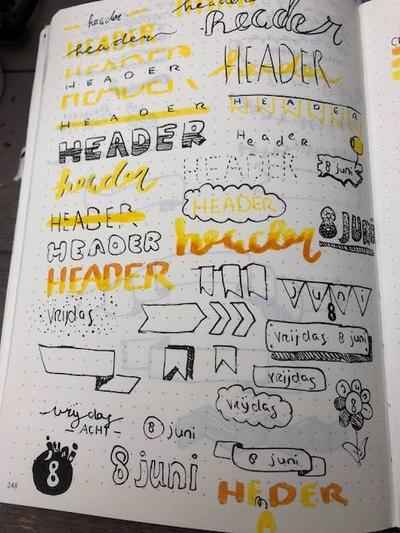 header
header
Header
HEADER
header
HEADER
HEADER
HEADER
HEADER
HEADER
HEADER
HEADER
Header
HEADER
HEADER
8 juni
header
HEADER
HEADER
8 JUNI
HEADER
header
HEADER
juni
8
vrijdas
vrijdas 8 juni
vrijdas
vrijdas
JUNI
8
vrijdag
-ACHT-
8 juni
juni
8
8 juni
8 juni
HEDER
A
248